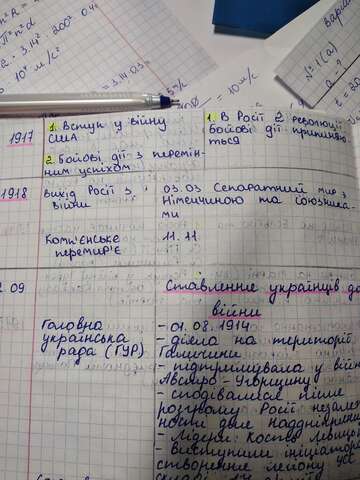 1917
1. Вступ у війну
США
2. Бойові дії з перемін-
ним успіхом
1. В Росії 2 революції
бойові дії припиня-
ться
1918
Вихід Росії з
війни
03.03 Сепаратний мир з
Німеччиною та союзника-
ми
Комп'єнське
перемир'є
11.11.
09
Ставлення українців до
війни
Головна
українська
рада (ГУР)
- 01.08.1914
- діяла на території
Галичини
- підтримувала у війні
Австро-Угорщину
- сподівалися після
розгрому Росії незалеж
ности для наддніпрян
- Лідери: Кость Левицьк
- Виступили ініціатора
створення легіону УСС
10 м/с
10 м/с²
N=1(а)